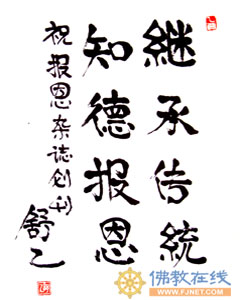 継承传統
知德报恩
祝报恩杂誌创刊
舒乙
佛教在线
WWW.FJNET.COM